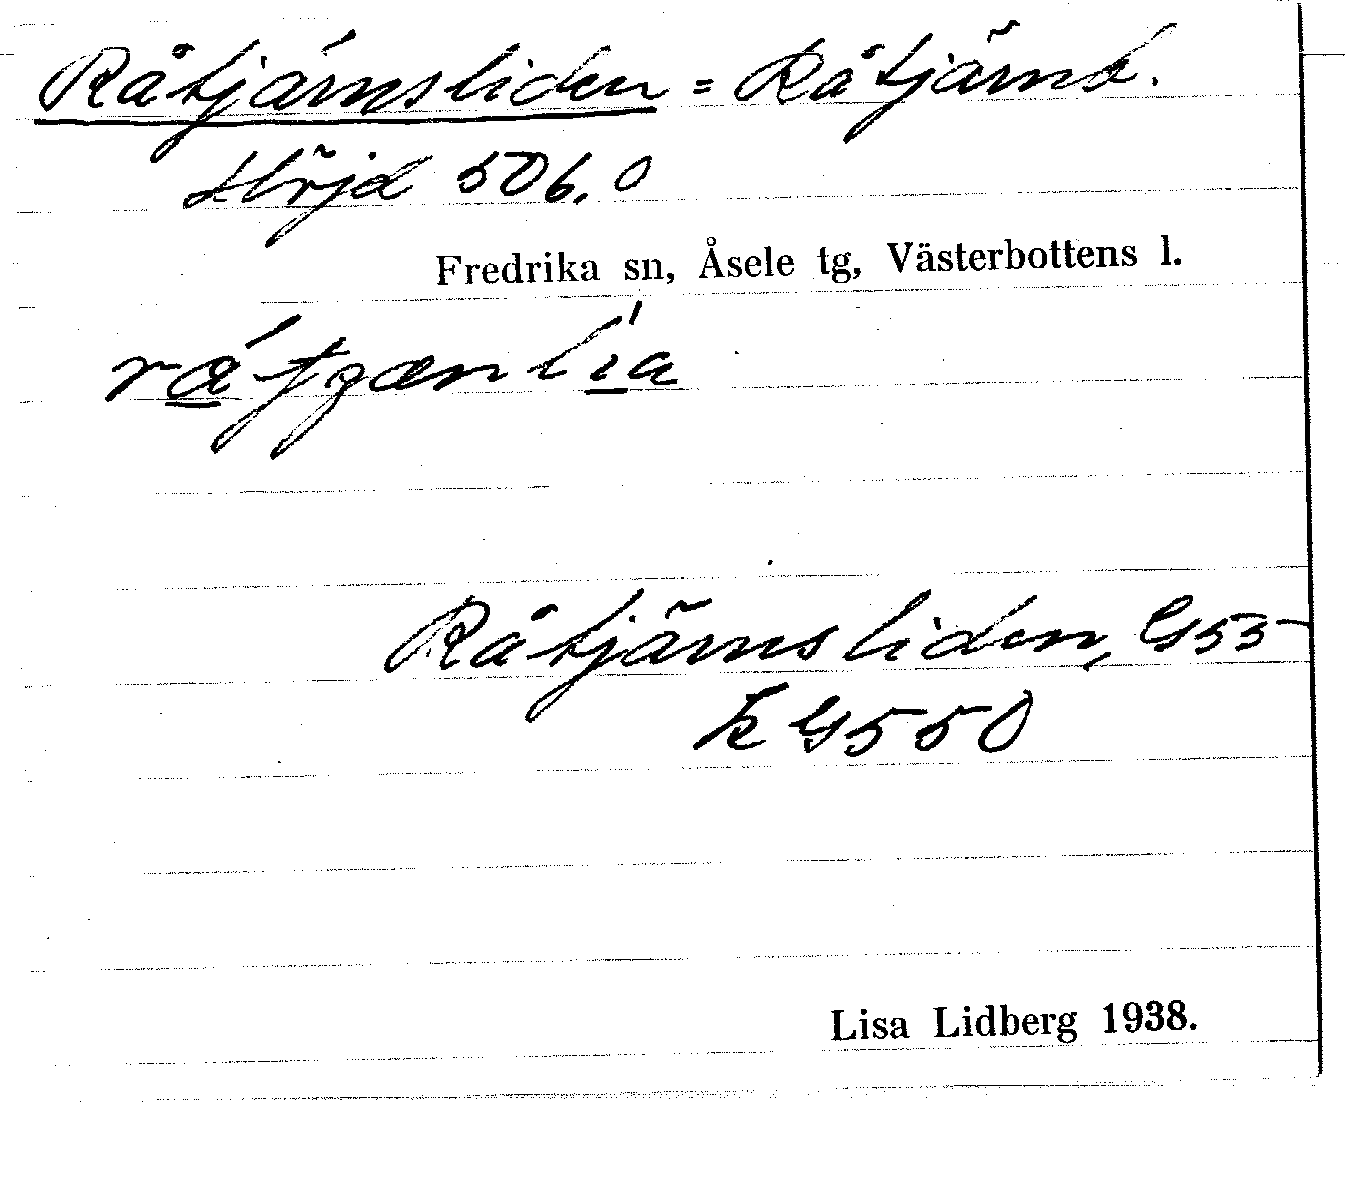 Råtjärnsliden = Råtjärnb.
Höjd 506.0
Fredrika sn, Åsele tg, Västerbottens l.
Råtjärnsliden, G55
K G550
Lisa Lidberg 1938.